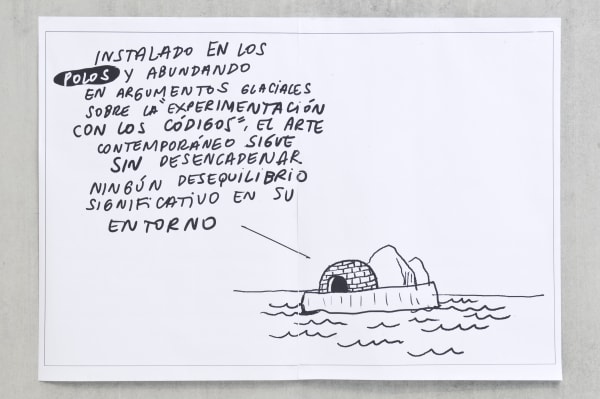 INSTALADO EN LOS
POLOS Y ABUNDANDO
EN ARGUMENTOS GLACIALES
SOBRE LA "EXPERIMENTACIÓN
CON LOS CÓDIGOS", EL ARTE
CONTEMPORÁNEO SIGUE
SIN DESENCADENAR
NINGÚN DESEQUILIBRIO
SIGNIFICATIVO EN SU
ENTORNO